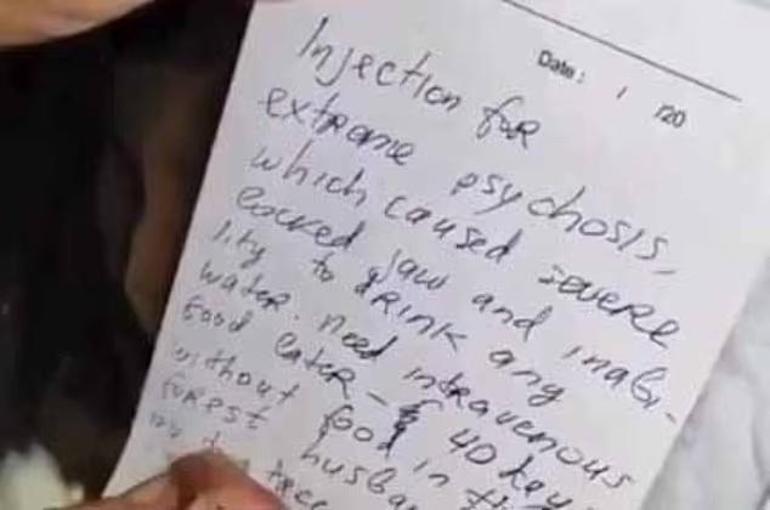 Date: / /20
Injection for
extreme psychosis,
which caused severe
locked jaw and inabi-
lity to drink any
water. Need intravenous
food later - 40 day
without food in the
forest husba
tree